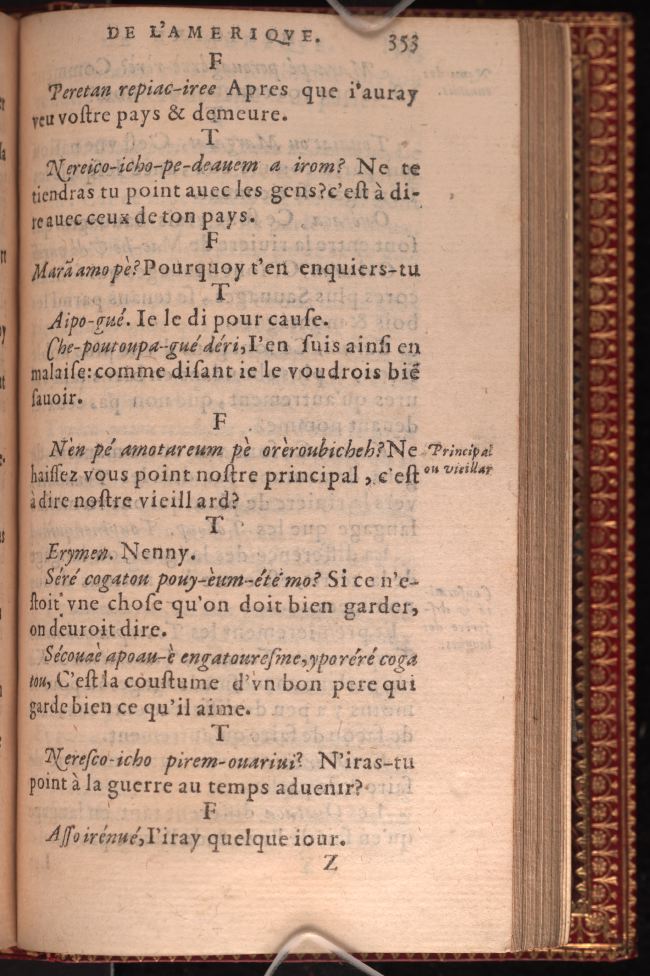 DE L'AMERIQVE. 353
F
Peretan repiac-iree Apres que i'auray
veu voſtre pays & demeure.
T
Nereico-icho-pe-deauem a irom? Ne te
tiendras tu point auec les gens? c'eſt à di-
re auec ceux de ton pays.
F
Marã amo pè? Pourquoy t'en enquiers-tu
T
Aipo-gué. Ie le di pour cauſe.
Che-poutoupa-gué déri, I'en ſuis ainſi en
malaiſe: comme diſant ie le voudrois biẽ
ſauoir.
F
Nèn pé amotareum pè orèroubicheh? Ne
haiſſez vous point noſtre principal, c'eſt
à dire noſtre vieillard?
Principal
ou vieillar
T
Erymen. Nenny.
Séré cogatou pouy-èum-été mo? Si ce n'e-
ſtoit vne choſe qu'on doit bien garder,
on deuroit dire.
Sécouaè apoau-è engatoureſme, yporéré coga
tou, C'eſt la couſtume d'vn bon pere qui
garde bien ce qu'il aime.
T
Nereſco-icho pirem-ouariui? N'iras-tu
point à la guerre au temps aduenir?
F
Aſſo irénué, I'iray quelque iour.
Z